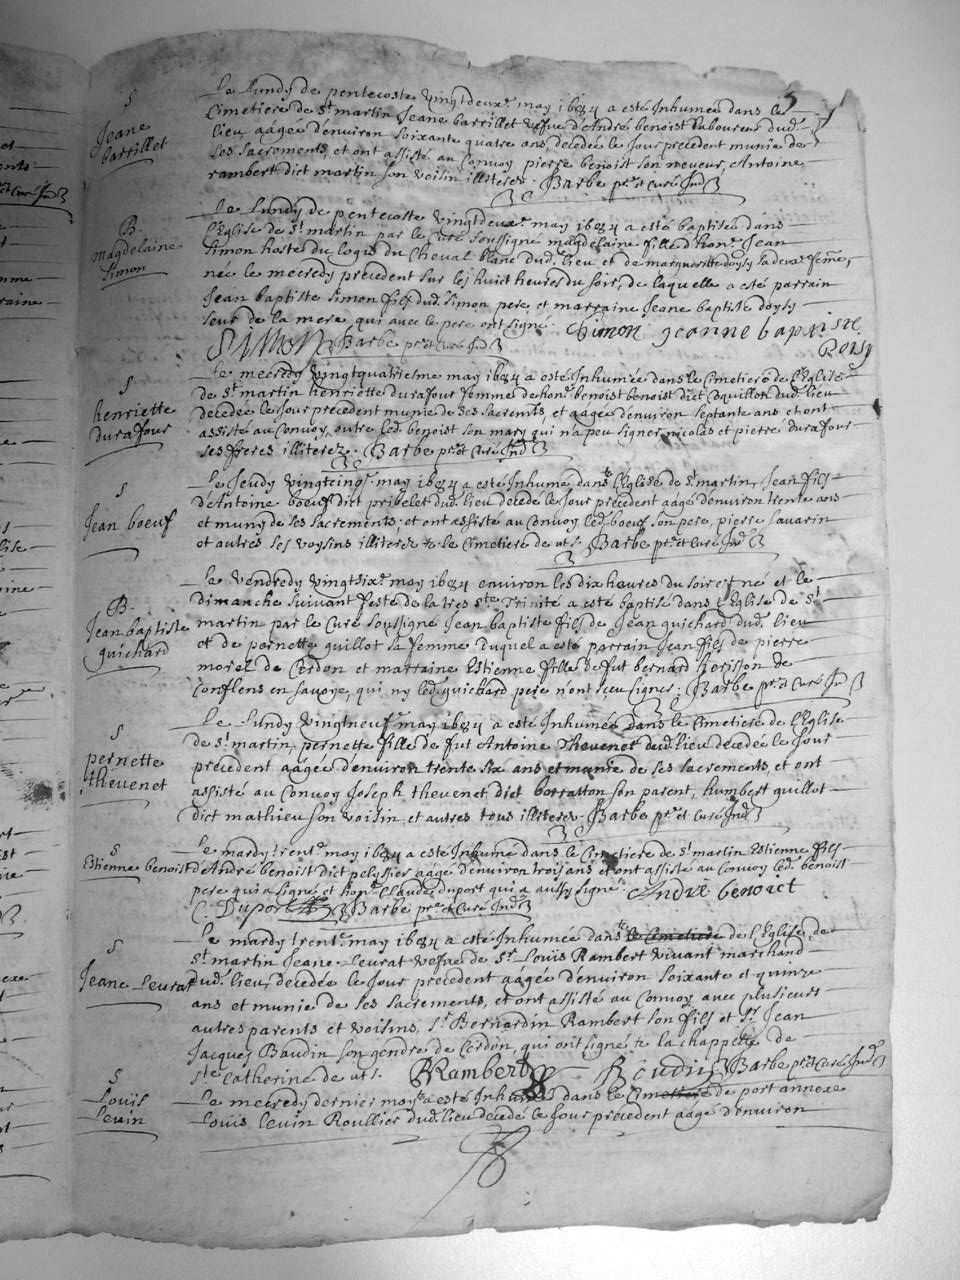 5
S
Jeane
barrillet
Le Lundy de pentecoste vingtdeuxe may 1684 a esté Inhumée dans le
Cimetiere de St martin Jeane barrillet vefve d'André benoist Laboureur dud.
lieu aagée d'environ soixante quatre ans, decedée le Jour precedent munie de
ses sacrements, et ont assisté au Convoy pierre benoist son neveur, Antoine
rambert dict martin son voisin illiterez. Barbe ptre et Curé Ind
B.
magdelaine
Simon
Le Lundy de pentecoste vingtdeuxe may 1684 a esté baptisée dans
l'Eglise de St martin par le Curé soussigné magdelaine fille d'hon. Jean
Simon hoste du logis du Cheval blanc dud. lieu et de marguerite doysy sa femme,
née le mecredy precedent sur les huict heures du soir, de laquelle a esté parrain
Jean baptiste Simon fils dud. Simon pere, et marraine Jeane baptiste doysy
seur de la mere qui avec le pere ont signé. Simon jeanne baptiste
Simon Barbe ptre et Curé Ind
S
henriette
durafour
Le mecredy vingtquatriesme may 1684 a esté Inhumée dans le Cimetiere de l'Eglise
de St martin henriette durafour femme de hon. benoist benoist dict Coquillon dud. lieu
decedée le Jour precedent munie de ses sacremts, et aagée d'environ septante ans et ont
assisté au Convoy, outre led. benoist son mary qui n'a peu signer, nicolas et pierre durafour
ses freres illiterez. Barbe ptre et Curé Ind
S
Jean boeuf
Le Jeudy vingtcinq. may 1684 a esté Inhumé dans l'Eglise de St martin, Jean fils
d'Antoine boeuf dict pribelet dud. lieu decedé le Jour precedent aagé d'environ trente ans
et muny de ses sacrements; et ont assisté au Convoy led. boeuf son pere, pierre savarin
et autres ses voysins illiterez le Cimetiere de Barbe ptre et Curé Ind
B.
Jean baptiste
guichard
Le vendredy vingtsixe may 1684 environ les dix heures du soir est né et le
dimanche suivant feste de la tres Ste Trinité a esté baptisé dans l'Eglise de St
martin par le Curé soussigné Jean baptiste fils de Jean guichard dud. lieu
et de pernette guillot sa femme duquel a esté parrain Jean fils de pierre
morel de Cerdon et marraine Estienne fille de fut bernard de
Conflens en savoye, qui ny led. guichard pere n'ont sceu signer. Barbe ptre et Curé Ind
S
pernette
thevenet
Le Lundy vingtneufe may 1684 a esté Inhumée dans le Cimetiere de l'Eglise
de St martin, pernette fille de fut Antoine Thevenet dud. lieu decedée le Jour
precedent aagée d'environ trente six ans et munie de ses sacrements, et ont
assisté au Convoy Joseph thevenet dict borratton son parent, humbert guillot
dict mathieu son voisin, et autres tous illiterez. Barbe ptre et Curé Ind
S
Estienne benoist
Le mardy trente may 1684 a esté Inhumé dans le Cimetiere de St martin Estienne fils
d'André benoist dict pelyssier aagé d'environ trois ans et ont assisté au Convoy led. benoist
pere qui a signé et hon. Claude duport qui a aussy signé. Andre benoict
C. Duport Barbe ptre et Curé Ind
S
Jeane Leurat
Le mardy trente may 1684 a esté Inhumée dans le Cimetiere de l'Eglise de
St martin Jeane Leurat vefve de Sr Louis Rambert vivant marchand
dud. lieu, decedée le Jour precedent aagée d'environ soixante et quinze
ans et munie de ses sacrements, et ont assisté au Convoy avec plusieurs
autres parents et voisins, Sr Bernardin Rambert son fils et Sr Jean
Jacques Baudin son gendre de Cerdon, qui ont signé la chappelle de
Ste Catherine de Rambert Barbe ptre et Curé Ind
S
Louis
Levin
Le mecredy dernier may a esté Inhumé dans le Cimetiere de port annexe
Louis Levin Roullier dud. lieu decedé le Jour precedent aagé d'environ